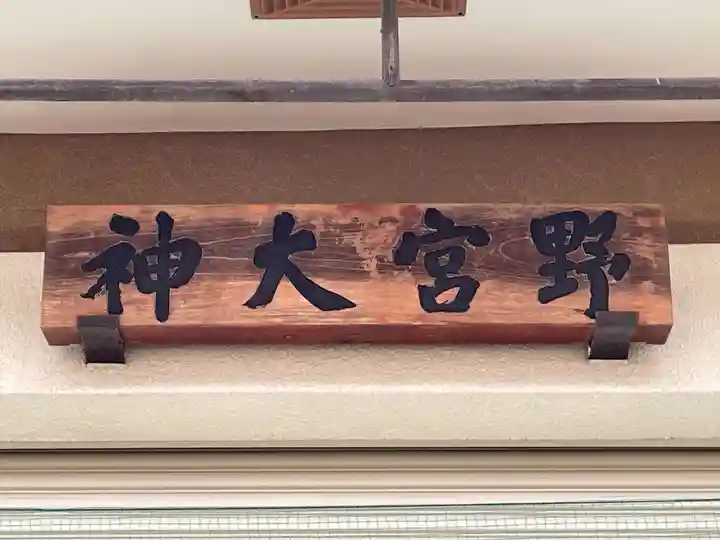 野宮大神